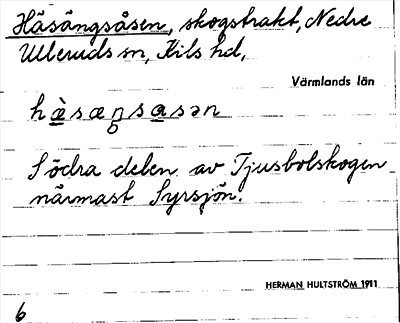 Häsängsåsen, skogstrakt, Nedre
Ulleruds sn, Kils hd,
Värmlands län
Södra delen av Tjusbolskogen
närmast Syrsjön.
HERMAN HULTSTRÖM 1911
6